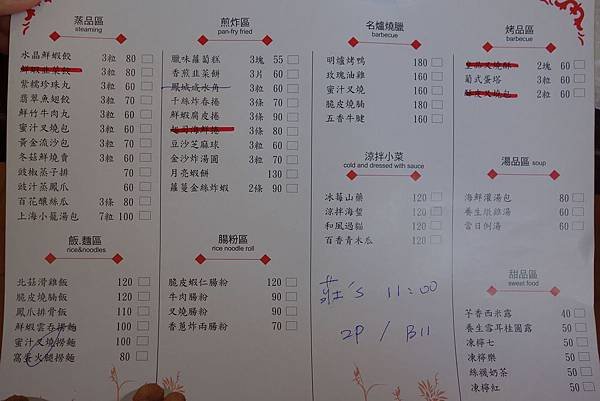 蒸品區
steaming
水晶鮮蝦餃 3粒 80
鮮蝦韭菜餃 3粒 80
紫糯珍珠丸 3粒 60
翡翠魚翅餃 3粒 70
鮮竹牛肉丸 3粒 60
蜜汁叉燒包 3粒 60
黃金流沙包 3粒 60
冬菇鮮燒賣 3粒 60
豉椒蒸子排 70
豉汁蒸鳳爪 60
百花釀絲瓜 3條 80
上海小籠湯包 7粒 100
飯.麵區
rice&noodles
北菇滑雞飯 120
脆皮燒腩飯 120
鳳爪排骨飯 110
鮮蝦雲吞撈麵 100
蜜汁叉燒撈麵 100
窩蛋火腿撈麵 80
煎炸區
pan-fry fried
臘味蘿蔔糕 3塊 55
香煎韭菜餅 3片 60
鳳城咸水角 3粒 60
千絲炸春捲 3條 70
鮮蝦腐皮捲 3條 90
起司海鮮捲 3條 80
豆沙芝麻球 3粒 60
金沙炸湯圓 3粒 60
月亮蝦餅 130
蘿蔓金絲炸蝦 2條 90
腸粉區
rice noodle roll
脆皮蝦仁腸粉 120
牛肉腸粉 90
叉燒腸粉 90
香蔥炸兩腸粉 70
名爐燒臘
barbecue
明爐烤鴨 180
玫瑰油雞 160
蜜汁叉燒 160
脆皮燒腩 160
五香牛腱 160
涼拌小菜
cold and dressed with sauce
冰莓山藥 120
涼拌海蜇 120
和風過貓 120
百香青木瓜 120
莊's 11:00
2P / B11
烤品區
barbecue
2塊 60
葡式蛋塔 3粒 60
酥皮叉燒包 2粒 60
湯品區 soup
海鮮灌湯包 80
養生燉雞湯 60
當日例湯 60
甜品區
sweet food
芋香西米露 40
養生雪耳桂圓露 50
凍檸七 50
凍檸樂 50
絲襪奶茶 50
凍檸紅 50